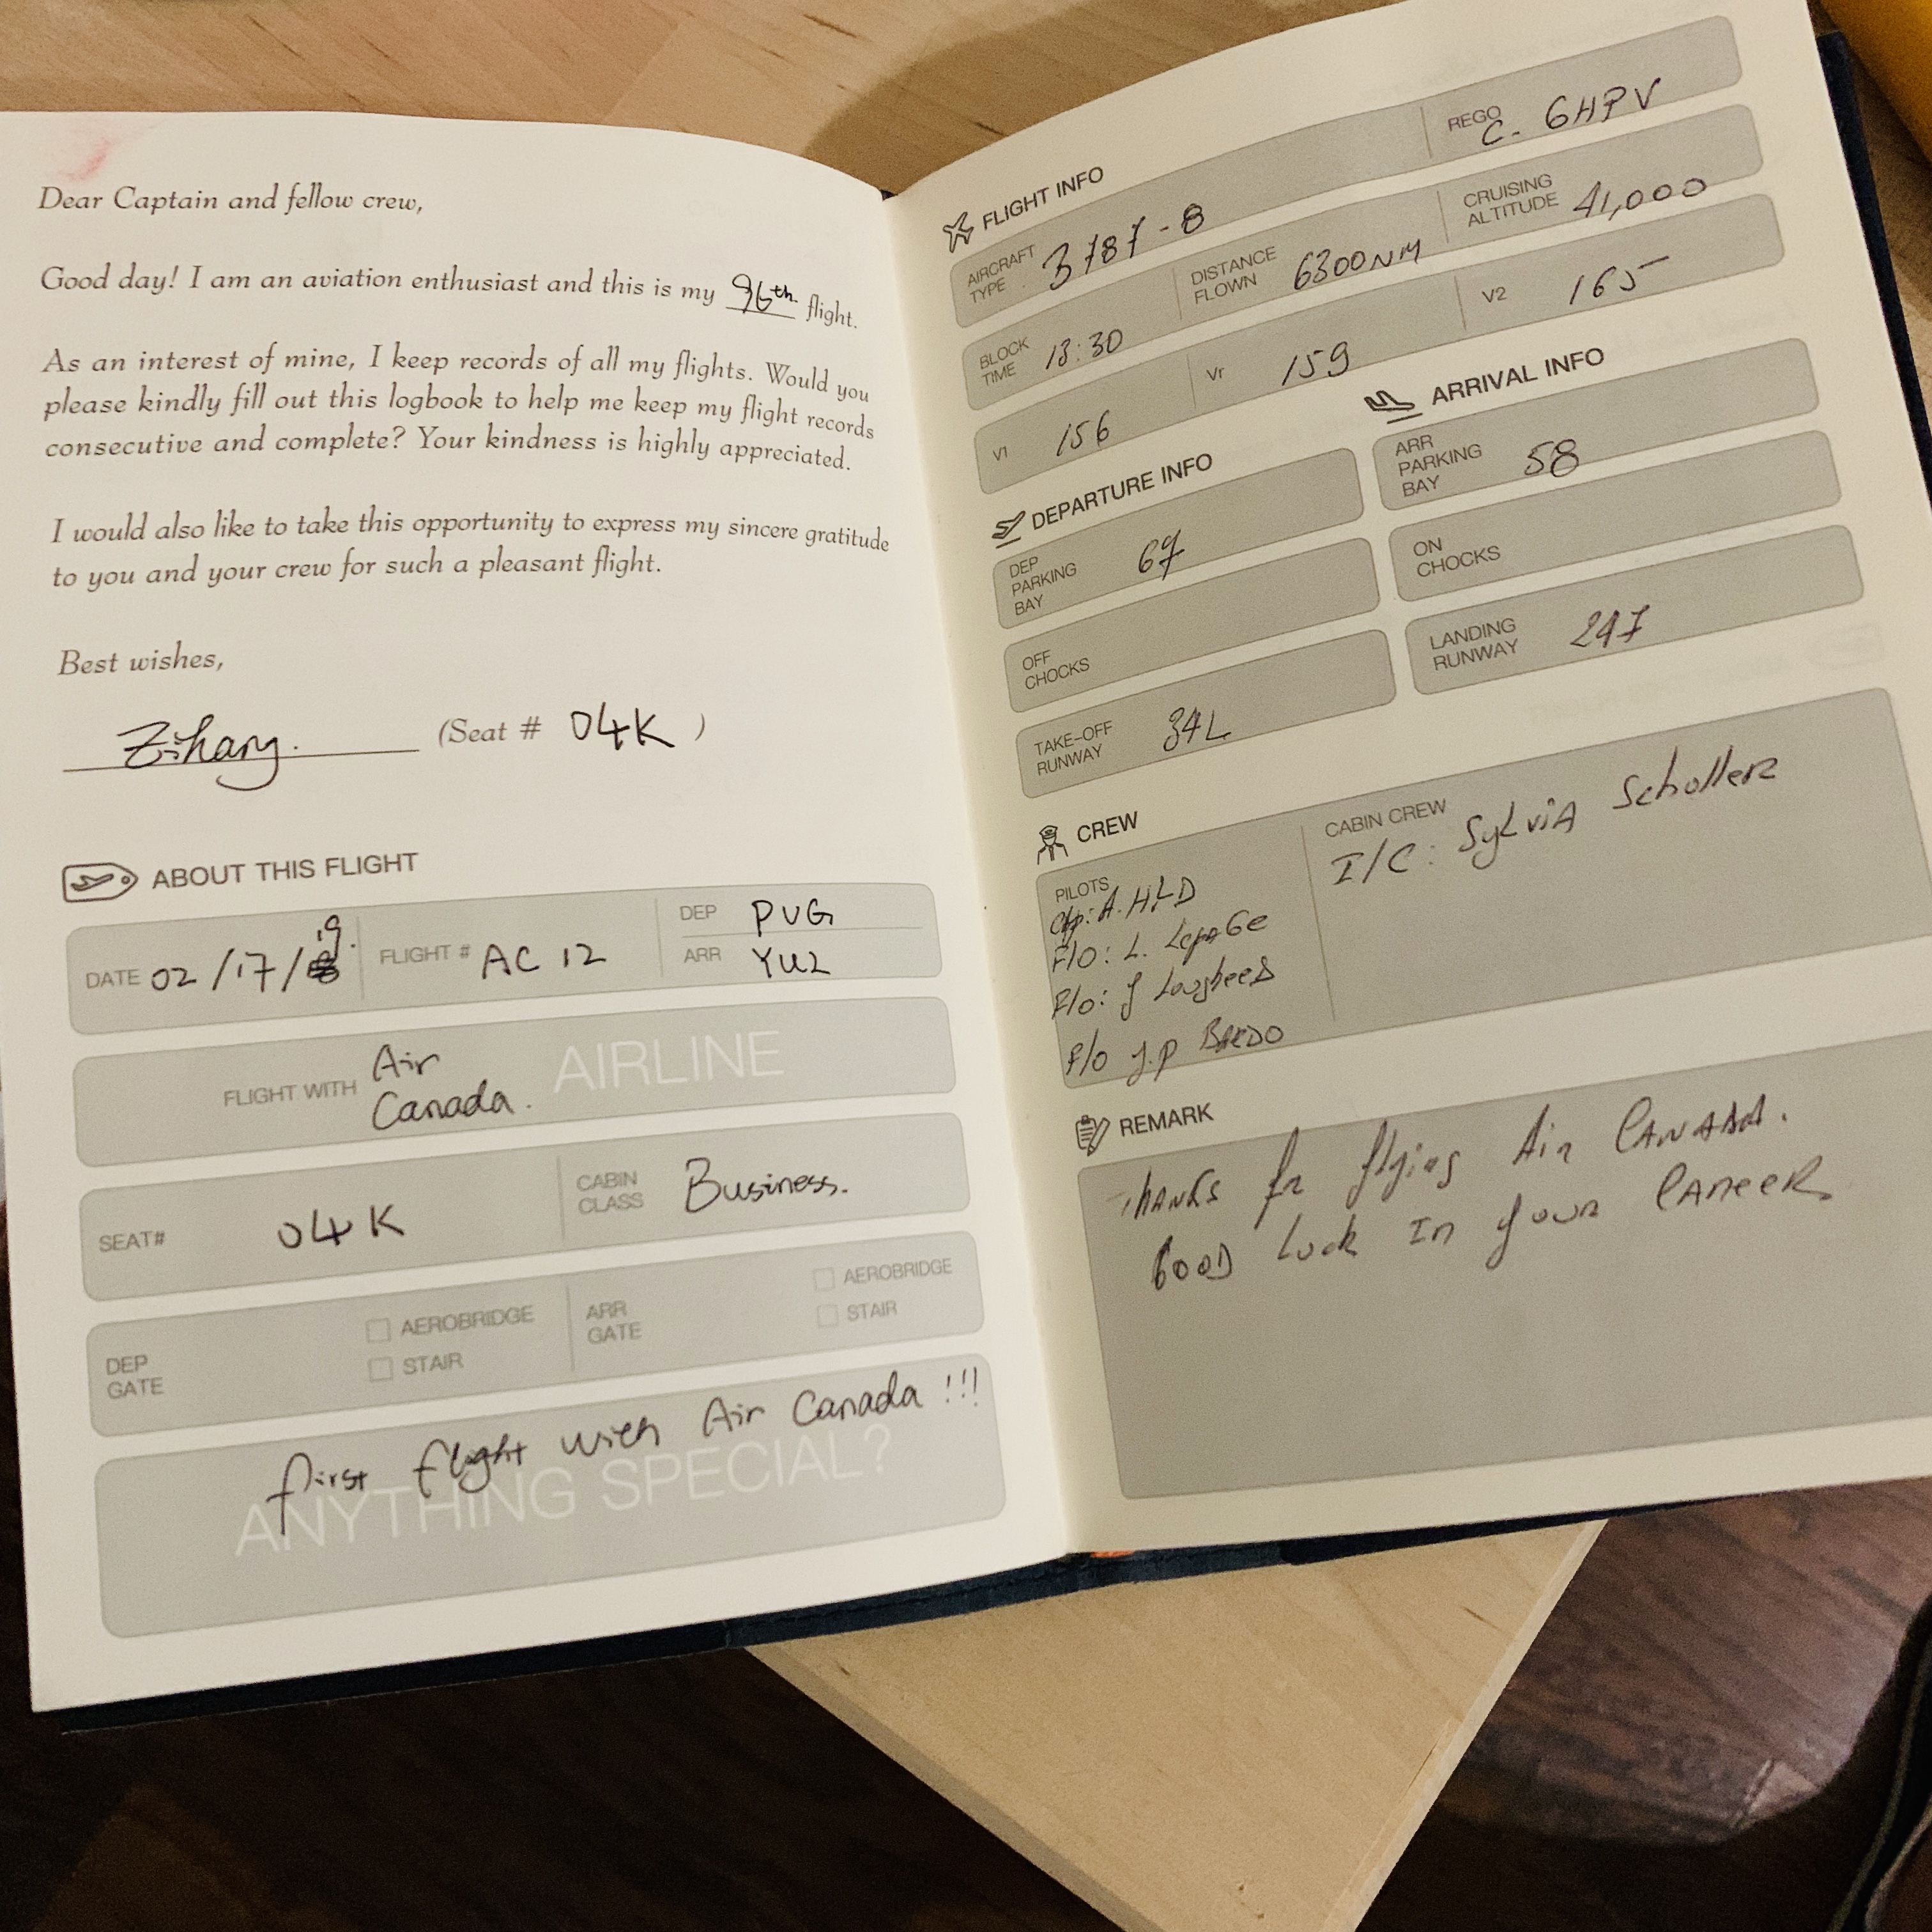 Dear Captain and fellow crew,
Good day! I am an aviation enthusiast and this is my 96th. flight.
As an interest of mine, I keep records of all my flights. Would you
please kindly fill out this logbook to help me keep my flight records
consecutive and complete? Your kindness is highly appreciated.
I would also like to take this opportunity to express my sincere gratitude
to you and your crew for such a pleasant flight.
Best wishes,
Zihang. (Seat # 04K )
ABOUT THIS FLIGHT
DATE 02/17/19. FLIGHT # AC 12
DEP PVG
ARR YUL
FLIGHT WITH Air Canada. AIRLINE
SEAT# 04K CABIN CLASS Business.
DEP GATE
AEROBRIDGE
STAIR
ARR GATE
AEROBRIDGE
STAIR
first flight with Air Canada !!!
ANYTHING SPECIAL?
FLIGHT INFO
AIRCRAFT TYPE B787-8 REGO C- GHPV
BLOCK TIME 13:30 DISTANCE FLOWN 6300NM CRUISING ALTITUDE 41,000
V1 156 Vr 159 V2 165
DEPARTURE INFO
DEP PARKING BAY 67
OFF CHOCKS
TAKE-OFF RUNWAY 34L
ARRIVAL INFO
ARR PARKING BAY 58
ON CHOCKS
LANDING RUNWAY
CREW
PILOTS
A. HLD
F/O: L. LepaGe
F/O: J Lougheed
F/O J.P
CABIN CREW
I/C: SyLviA Scholler
REMARK
THANKS for flying Air CANADA.
GOOD Luck In your CAREER